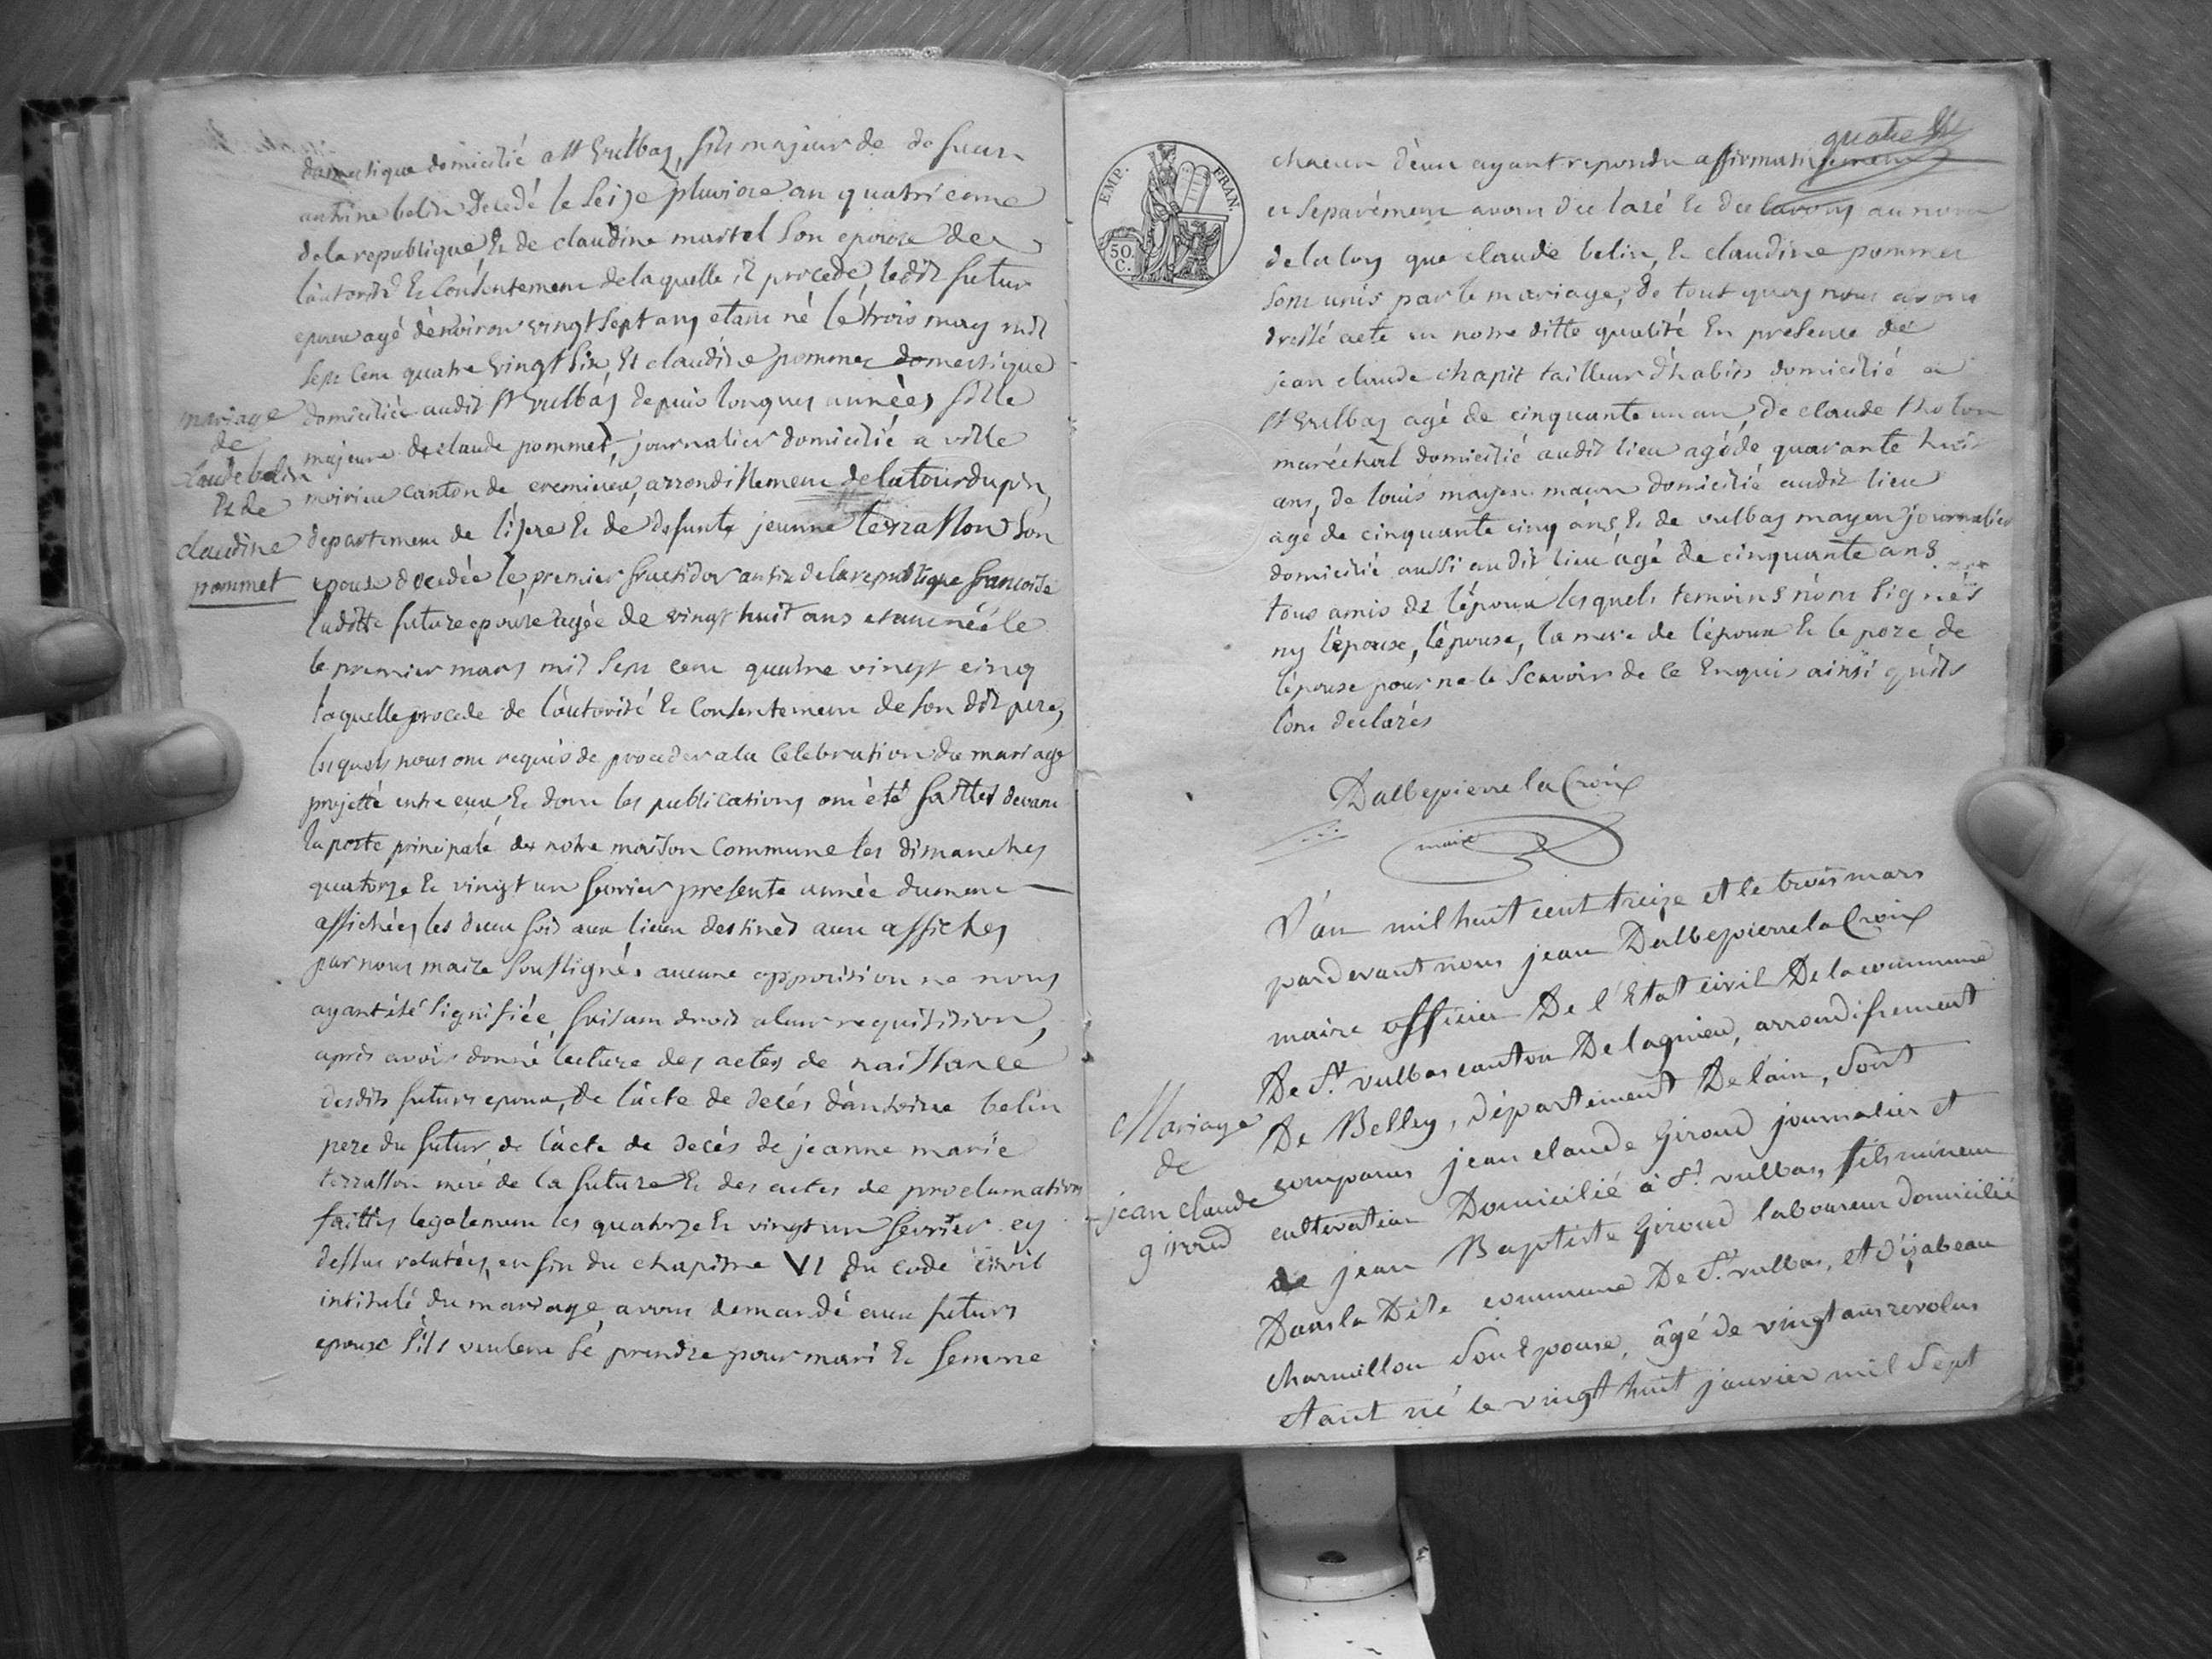 domestique domicilié a St Vulbaz, fils majeur de defeun
antoine belin Decedé le Seize pluviose an quatrieme
dela republique, Et de claudine martel Son epouse de
l'autorité Et Consentement delaquelle il procede, ledit futur
epoux agé d'environ vingt Sept ans etant né le trois may mil
Sept Cent quatre vingt Six, Et claudine pommet domestique
domiciliée audit St Vulbaz depuis longues années fille
majeure de claude pommet, journalier domicilié a ville
moirieu canton de cremieux, arrondissement de latourdupin,
departement de l'isere Et de defunte jeanne terrasson Son
epouse decedée le premier fructidor an six dela republique francoise
ladite future epouse agée de vingt huit ans etant née le
le premier mars mil Sept cent quatre vingt cinq
laquelle procede de l'autorité Et Consentement de Son dit pere,
lesquels nous ont requis de proceder a la Celebration du mariage
projetté entre eux Et dont les publications ont été faittes devant
la porte principale de notre maison Commune les dimanches
quatorze Et vingt un fevrier presente année dument
affichées les deux fois aux lieux destinés aux affiches
par nous maire Soussigné. aucune opposition ne nous
ayant été Signifiée, faisant droit a leur requisition,
après avoir donné lecture des actes de naissance
desdits futurs epoux, de l'acte de decés d'antoine belin
pere du futur, de l'acte de decès de jeanne marie
terrasson mere de la future Et des actes de proclamations
faittes legalement les quatorze Et vingt un fevrier cy
dessus relatées, enfin du chapitre VI du code civil
intitulé du mariage, avons demandé aux futurs
epoux S'ils veulent Se prendre pour mari Et femme
mariage
de
Claude belin
Et de
claudine
pommet
quatre
chacun d'eux ayant repondu affirmativement
et Separément avons declaré Et declarons au nom
de la loy que claude belin, Et claudine pommet
Sont unis par le mariage, de tout quoy nous avons
dressé acte en notre ditte qualité En presence de
jean claude chapit tailleur d'habits domicilié a
St Vulbaz agé de cinquante un an, de claude tholon
maréchal domicilié audit lieu agé de quarante huit
ans, de louis mayen maçon domicilié audit lieu
agé de cinquante cinq ans Et de vulbaz mayen journalier
domicilié aussi audit lieu agé de cinquante ans
tous amis de l'époux lesquels temoins n'ont Signés
ny l'epouse, l'épouse, la mere de l'époux Et le pere de
l'épouse pour ne le Scavoir de ce Enquis ainsi qu'ils
l'ont declarés
Dalbepierre la Croix
maire
L'an mil huit cent treize et le trois mars
pardevant nous jean Dalbepierre la Croix
maire officier De l'Etat civil De la commune
De St. vulbas canton De lagnieu, arrondissement
De Belley, département De l'ain, Sont
comparus jean claude Giroud journalier et
cultivateur Domicilié à St. vulbas, fils mineur
de jean Baptiste Giroud laboureur domicilié
Dans la Dite commune De St. vulbas, et d'izabeau
charmillon Son Epouse, âgé de vingt ans revolus
etant né le vingt huit janvier mil Sept
Mariage
de
jean claude
giroud
EMP. FRAN.
50
C.